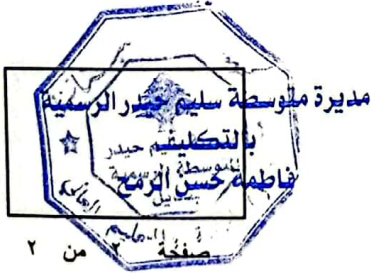 مديرة متوسطة سليم حيدر الرسمية
بالتكليف
فاطمة حسن الرمح
صفحة ٢ من ٢